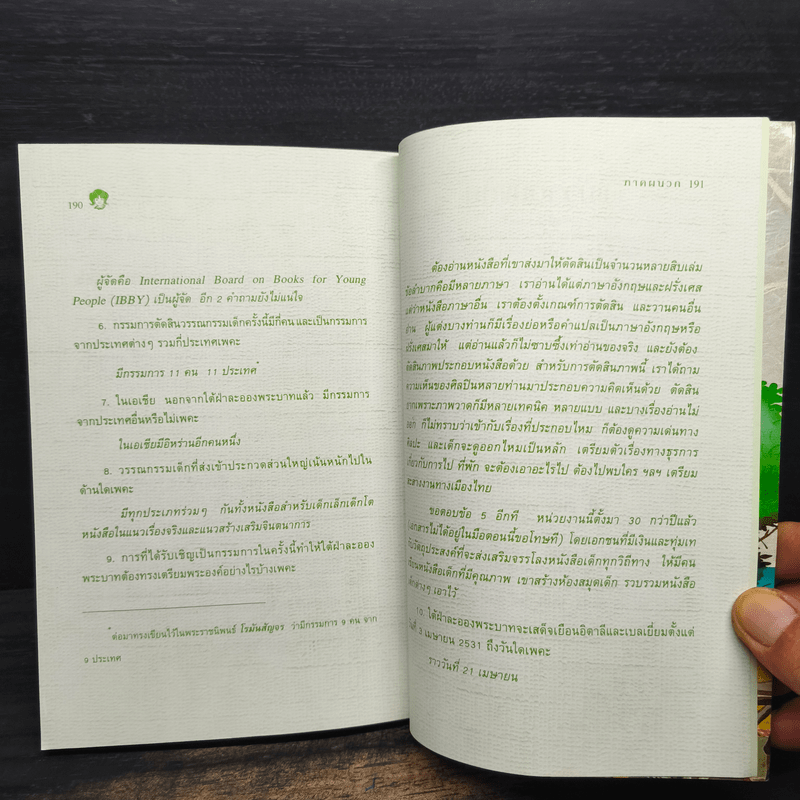 190
ผู้จัดคือ International Board on Books for Young
People (IBBY) เป็นผู้จัด อีก 2 คำถามยังไม่แน่ใจ
6. กรรมการตัดสินวรรณกรรมเด็กครั้งนี้มีกี่คน และเป็นกรรมการ
จากประเทศต่างๆ รวมกี่ประเทศเพคะ
มีกรรมการ 11 คน 11 ประเทศ*
7. ในเอเชีย นอกจากใต้ฝ่าละอองพระบาทแล้ว มีกรรมการ
จากประเทศอื่นหรือไม่เพคะ
ในเอเชียมีอิหร่านอีกคนหนึ่ง
8. วรรณกรรมเด็กที่ส่งเข้าประกวดส่วนใหญ่เน้นหนักไปใน
ด้านใดเพคะ
มีทุกประเภทร่วมๆ กันทั้งหนังสือสำหรับเด็กเล็กเด็กโต
หนังสือในแนวเรื่องจริงและแนวสร้างเสริมจินตนาการ
9. การที่ได้รับเชิญเป็นกรรมการในครั้งนี้ทำให้ใต้ฝ่าละออง
พระบาทต้องทรงเตรียมพระองค์อย่างไรบ้างเพคะ
*ต่อมาทรงเขียนไว้ในพระราชนิพนธ์ โรมันสัญจร ว่ามีกรรมการ 9 คน จาก
9 ประเทศ
ภาคผนวก 191
ต้องอ่านหนังสือที่เขาส่งมาให้ตัดสินเป็นจำนวนหลายสิบเล่ม
ข้อลำบากคือมีหลายภาษา เราอ่านได้แต่ภาษาอังกฤษและฝรั่งเศส
แต่ว่าหนังสือภาษาอื่น เราต้องตั้งเกณฑ์การตัดสิน และวานคนอื่น
อ่าน ผู้แต่งบางท่านก็มีเรื่องย่อหรือคำแปลเป็นภาษาอังกฤษหรือ
ฝรั่งเศสมาให้ แต่อ่านแล้วก็ไม่ซาบซึ้งเท่าอ่านของจริง และยังต้อง
ตัดสินภาพประกอบหนังสือด้วย สำหรับการตัดสินภาพนี้ เราได้ถาม
ความเห็นของศิลปินหลายท่านมาประกอบความคิดเห็นด้วย ตัดสิน
ยากเพราะภาพวาดก็มีหลายเทคนิค หลายแบบ และบางเรื่องอ่านไม่
ออก ก็ไม่ทราบว่าเข้ากับเรื่องที่ประกอบไหม ก็ต้องดูความเด่นทาง
ศิลปะ และเด็กจะดูออกไหมเป็นหลัก เตรียมตัวเรื่องทางธุรการ
เกี่ยวกับการไป ที่พัก จะต้องเอาอะไรไป ต้องไปพบใคร ฯลฯ เตรียม
สะสางงานทางเมืองไทย
ขอตอบข้อ 5 อีกที หน่วยงานนี้ตั้งมา 30 กว่าปีแล้ว
(เอกสารไม่ได้อยู่ในมือตอนนี้ขอโทษที) โดยเอกชนที่มีเงินและทุ่มเท
วัตถุประสงค์ที่จะส่งเสริมจรรโลงหนังสือเด็กทุกวิถีทาง ให้มีคน
เขียนหนังสือเด็กที่มีคุณภาพ เขาสร้างห้องสมุดเด็ก รวบรวมหนังสือ
เด็กต่างๆ เอาไว้
10. ใต้ฝ่าละอองพระบาทจะเสด็จเยือนอิตาลีและเบลเยี่ยมตั้งแต่
วันที่ 3 เมษายน 2531 ถึงวันใดเพคะ
ราววันที่ 21 เมษายน